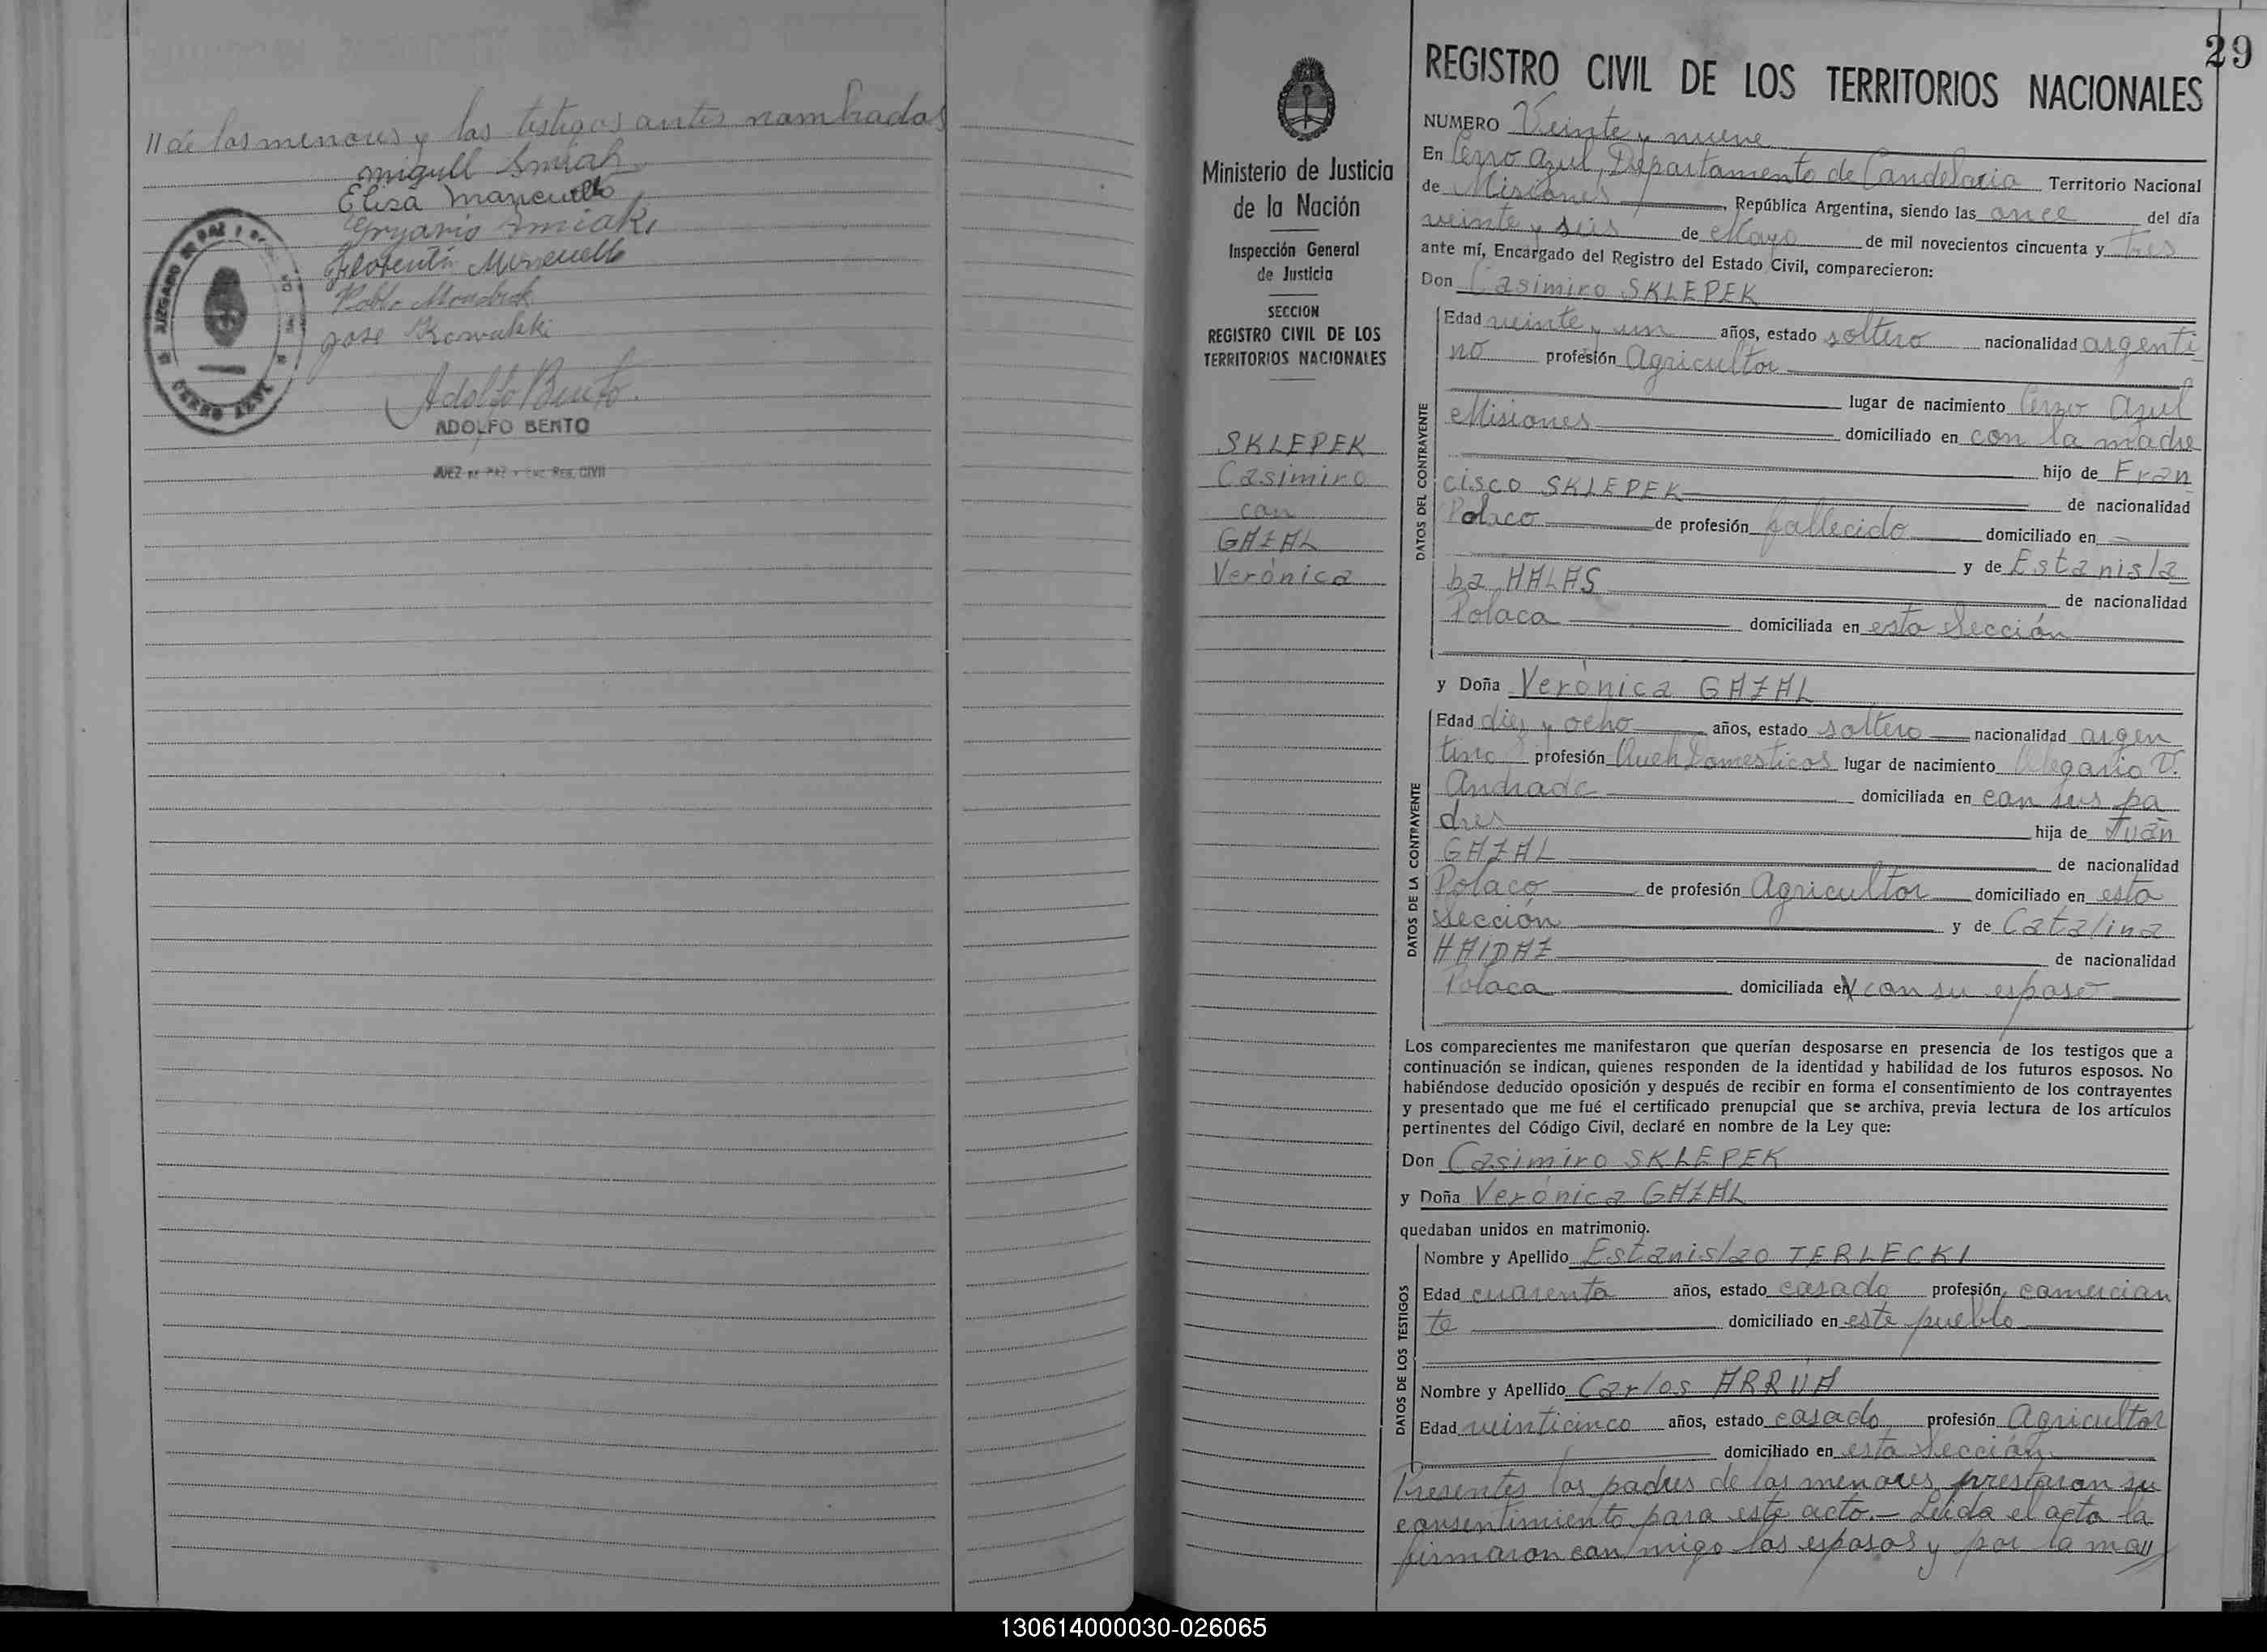 // de los menores y los testigos antes nombrados
Miguel Smiak
Elisa Mancuello
Smiaki
Pablo
Jose Kowalski
Adolfo Bento.
ADOLFO BENTO
JUEZ DE PAZ Y ENC. REG. CIVIL
JUZGADO DE PAZ
CERRO AZUL
29
Ministerio de Justicia
de la Nación
Inspección General
de Justicia
SECCION
REGISTRO CIVIL DE LOS
TERRITORIOS NACIONALES
SKLEPEK
Casimiro
con
GAZAL
Verónica
REGISTRO CIVIL DE LOS TERRITORIOS NACIONALES
NUMERO Veinte y nueve
En Cerro Azul, Departamento de Candelaria Territorio Nacional
de Misiones, República Argentina, siendo las once del día
veinte y seis de Mayo de mil novecientos cincuenta y tres
ante mí, Encargado del Registro del Estado Civil, comparecieron:
Don Casimiro SKLEPEK
DATOS DEL CONTRAYENTE
Edad veinte y un años, estado soltero nacionalidad argenti
no profesión Agricultor
lugar de nacimiento Cerro Azul
Misiones domiciliado en con la madre
hijo de Fran
cisco SKLEPEK de nacionalidad
Polaco de profesión fallecido domiciliado en
y de Estanisla
ba HALAS de nacionalidad
Polaca domiciliada en esta Sección
y Doña Verónica GAZAL
DATOS DE LA CONTRAYENTE
Edad diez y ocho años, estado soltero nacionalidad argen
tino profesión Queh Domesticos lugar de nacimiento Olegario V.
Andrade domiciliada en con sus pa
dres hija de Juan
GAZAL de nacionalidad
Polaco de profesión Agricultor domiciliado en esta
Sección y de Catalina
HAIDAZ de nacionalidad
Polaca domiciliada en con su esposo
Los comparecientes me manifestaron que querían desposarse en presencia de los testigos que a
continuación se indican, quienes responden de la identidad y habilidad de los futuros esposos. No
habiéndose deducido oposición y después de recibir en forma el consentimiento de los contrayentes
y presentado que me fué el certificado prenupcial que se archiva, previa lectura de los artículos
pertinentes del Código Civil, declaré en nombre de la Ley que:
Don Casimiro SKLEPEK
y Doña Verónica GAZAL
quedaban unidos en matrimonio.
DATOS DE LOS TESTIGOS
Nombre y Apellido Estanislao TERLECKI
Edad cuarenta años, estado casado profesión comercian
te domiciliado en este pueblo
Nombre y Apellido Carlos ARRÚA
Edad veinticinco años, estado casado profesión Agricultor
domiciliado en esta Sección
Presentes los padres de los menores prestaron su
consentimiento para este acto.- Leída el acta la
firmaron conmigo los esposos y por la ma//
130614000030-026065